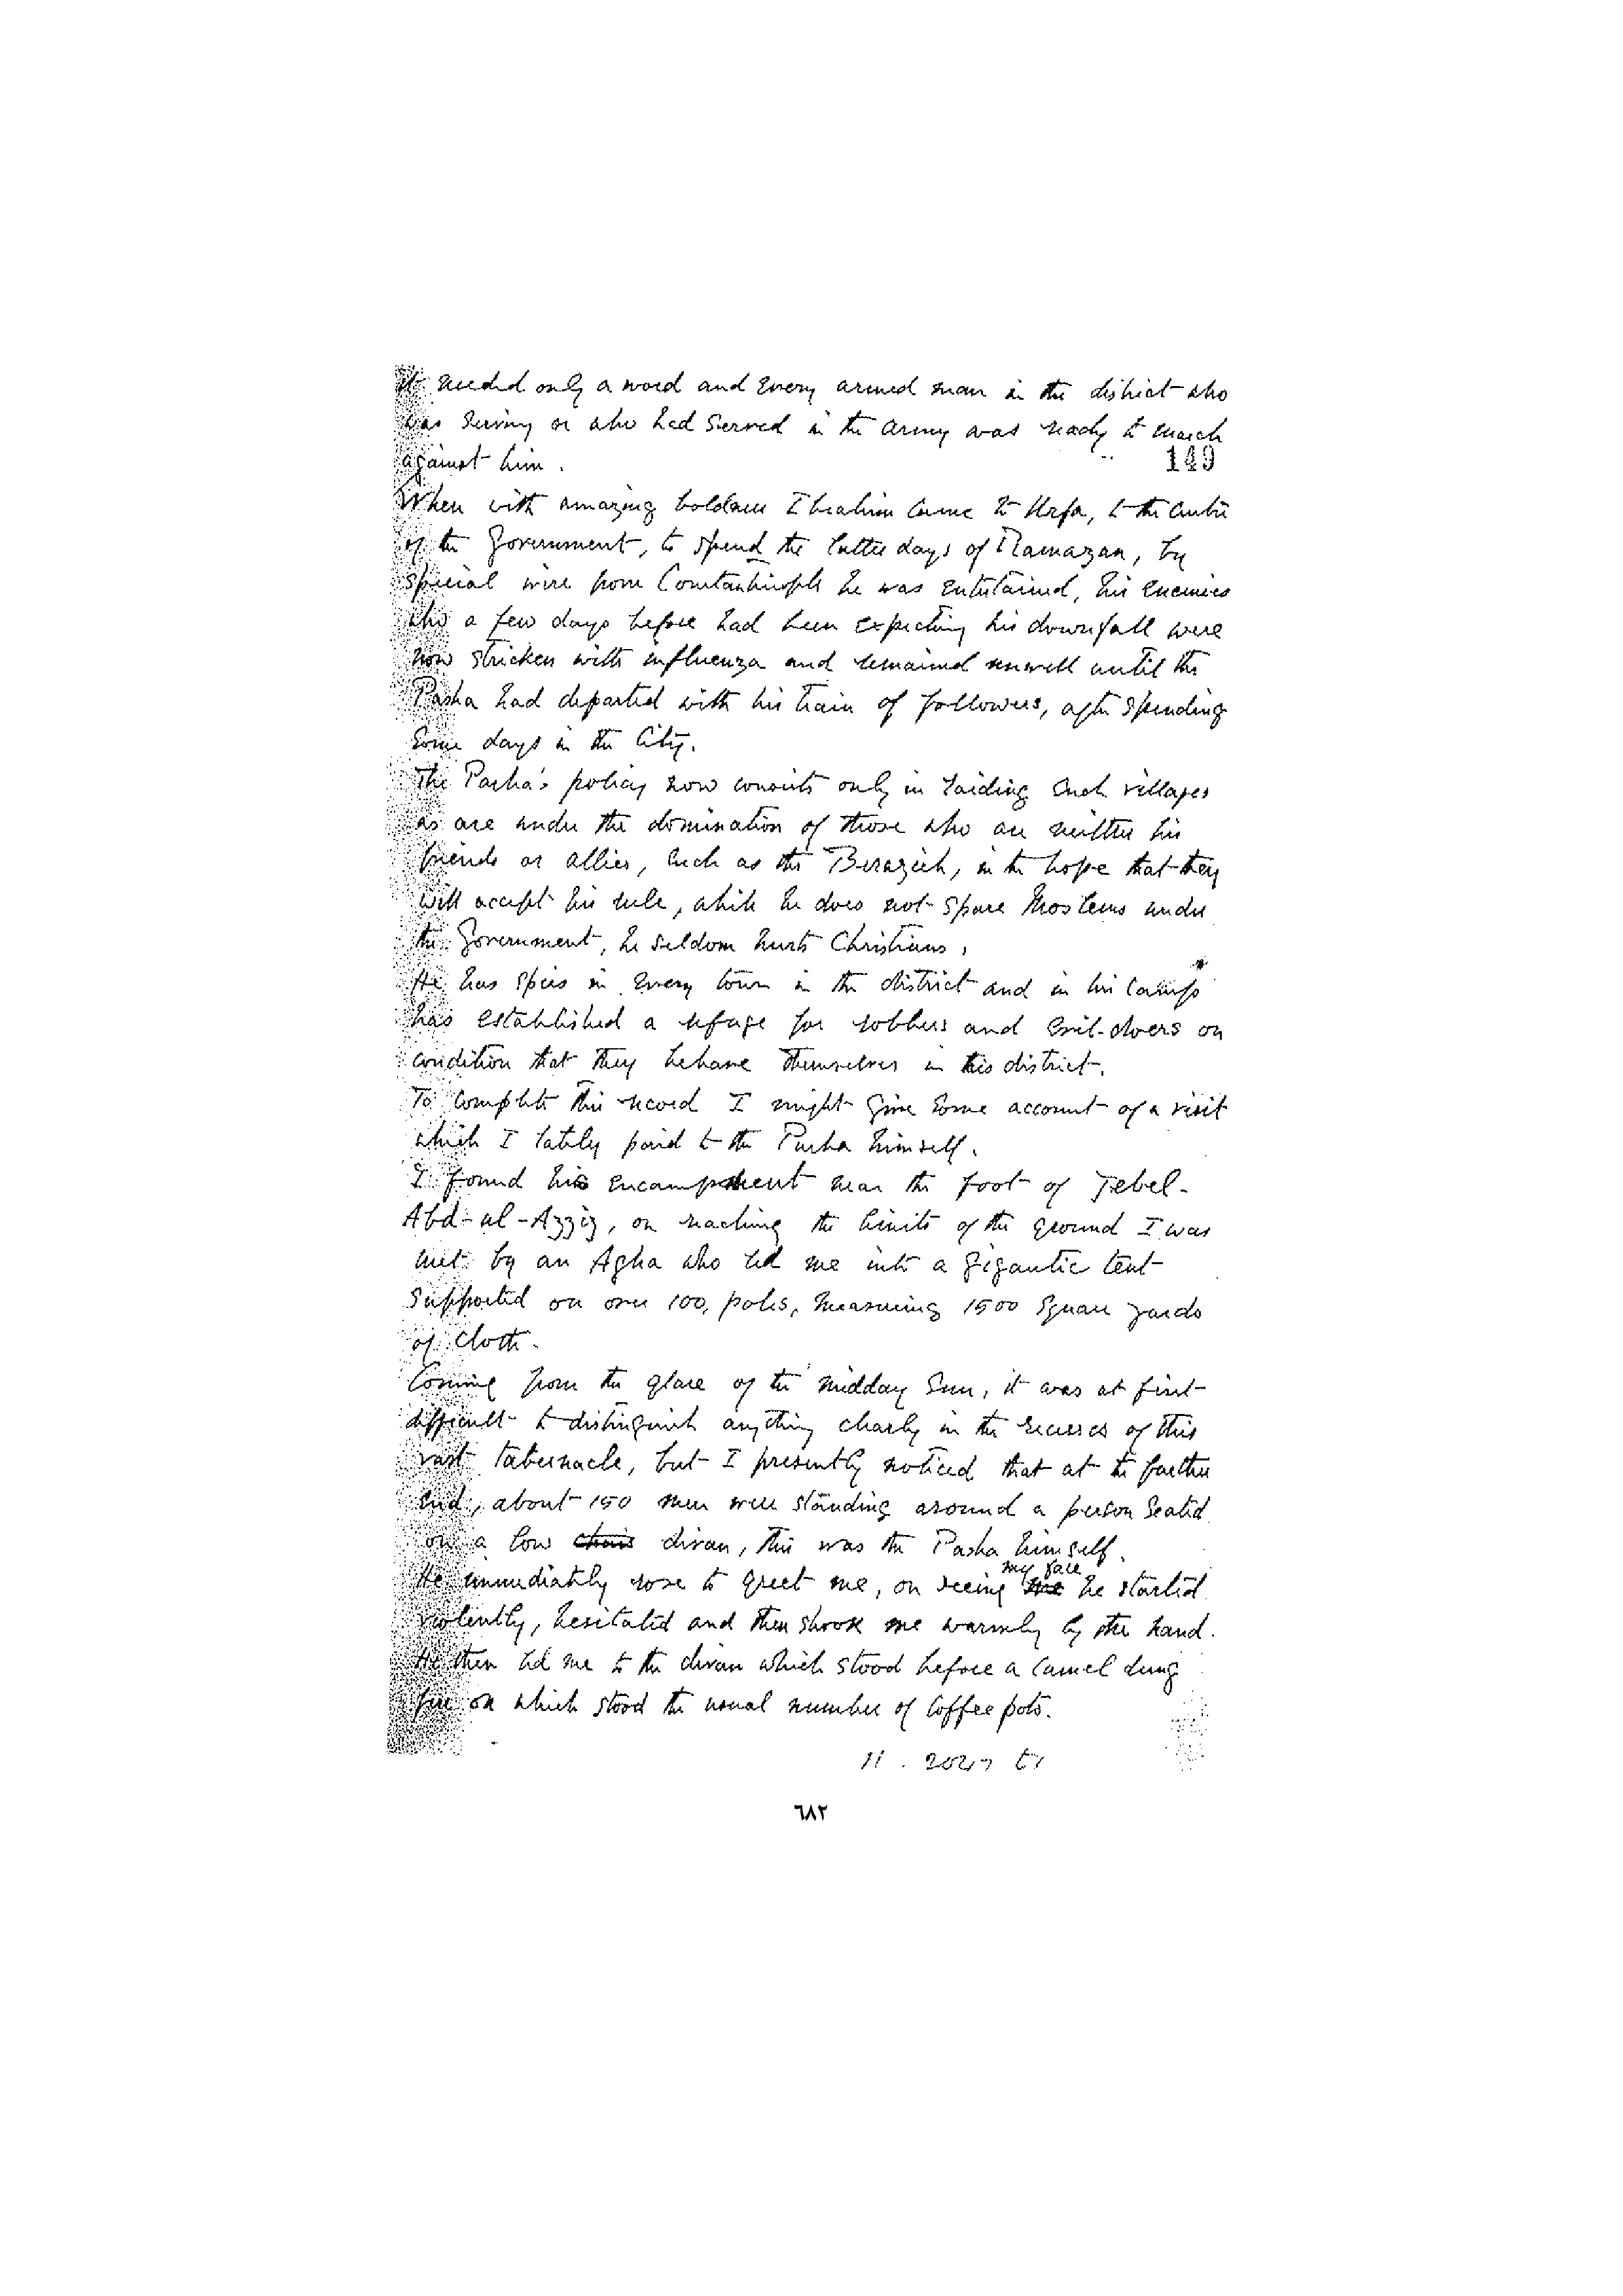 It needed only a word and every armed man in the district who
was serving or who had served in the army was ready to march
against him.
149
When with amazing boldness Ibrahim came to Urfa, to the centre
of the Government, to spend the latter days of Ramazan, by
special wire from Constantinople he was entertained, his enemies
who a few days before had been expecting his downfall were
now stricken with influenza and remained unwell until the
Pasha had departed with his train of followers, after spending
some days in the City.
The Pasha's policy now consists only in raiding such villages
as are under the domination of those who are neither his
friends or allies, such as the Berazieh, in the hope that they
will accept his rule, while he does not spare Moslems under
the Government, he seldom hurts Christians,
He has spies in every town in the district and in his Camp
has established a refuge for robbers and evil-doers on
condition that they behave themselves in his district.
To complete this record I might give some account of a visit
which I lately paid to the Pasha himself.
I found his encampment near the foot of Jebel-
Abd-ul-Azziz, on reaching the limits of the ground I was
met by an Agha who led me into a gigantic tent
supported on over 100, poles, measuring 1500 square yards
of cloth.
Coming from the glare of the midday Sun, it was at first
difficult to distinguish anything clearly in the recesses of this
vast tabernacle, but I presently noticed that at the farther
end, about 150 men were standing around a person seated
on a low chair divan, this was the Pasha himself.
my face
He immediately rose to greet me, on seeing me he started
violently, hesitated and then shook me warmly by the hand.
He then led me to the divan which stood before a Camel dung
fire on which stood the usual number of Coffee pots.
٦٨٢